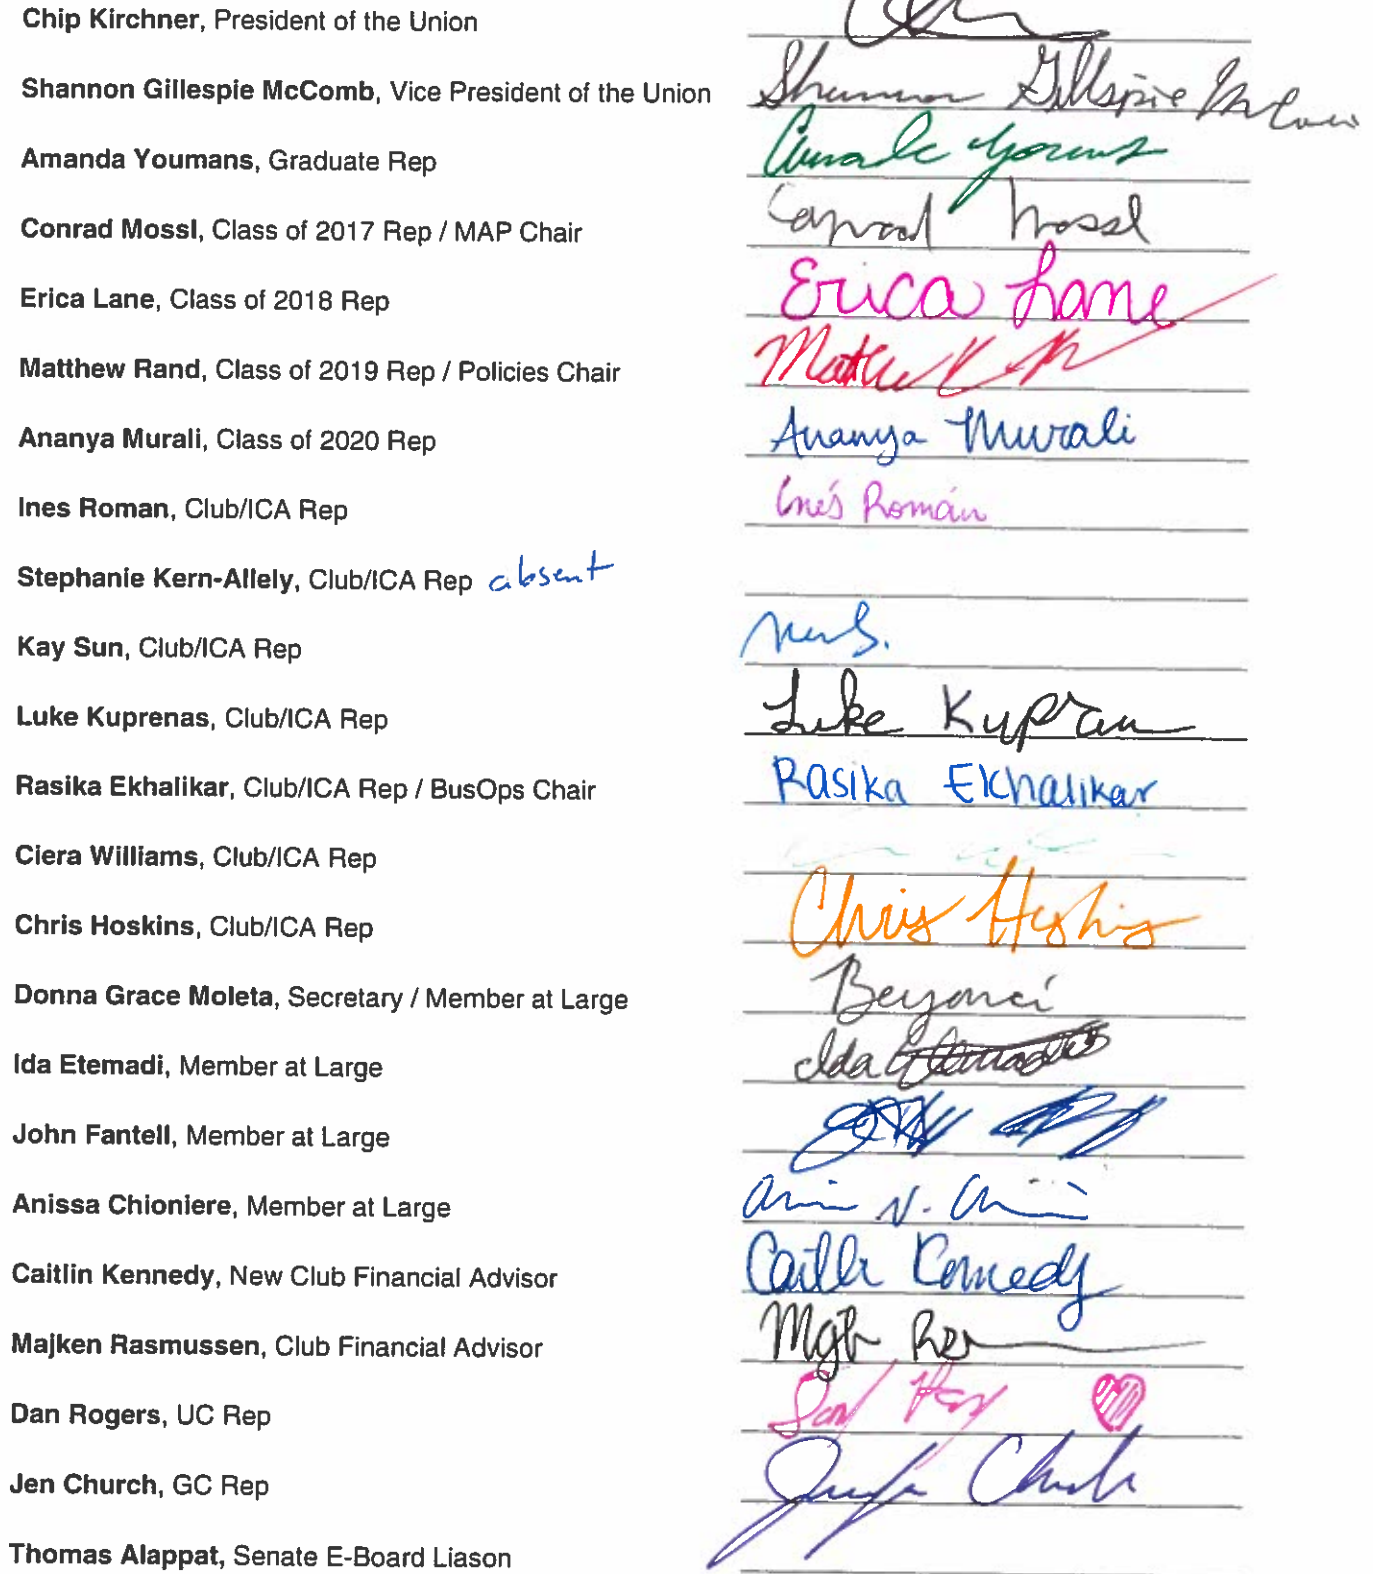 Chip Kirchner, President of the Union
Shannon Gillespie McComb, Vice President of the Union Shannon Gillespie McComb
Amanda Youmans, Graduate Rep
Conrad Mossl, Class of 2017 Rep / MAP Chair Conrad Mossl
Erica Lane, Class of 2018 Rep Erica Lane
Matthew Rand, Class of 2019 Rep / Policies Chair
Ananya Murali, Class of 2020 Rep Ananya Murali
Ines Roman, Club/ICA Rep Inés Román
Stephanie Kern-Allely, Club/ICA Rep absent
Kay Sun, Club/ICA Rep
Luke Kuprenas, Club/ICA Rep Luke
Rasika Ekhalikar, Club/ICA Rep / BusOps Chair Rasika Ekhalikar
Ciera Williams, Club/ICA Rep
Chris Hoskins, Club/ICA Rep Chris
Donna Grace Moleta, Secretary / Member at Large Beyoncé
Ida Etemadi, Member at Large Ida
John Fantell, Member at Large
Anissa Chioniere, Member at Large
Caitlin Kennedy, New Club Financial Advisor Caitlin Kennedy
Majken Rasmussen, Club Financial Advisor
Dan Rogers, UC Rep
Jen Church, GC Rep
Thomas Alappat, Senate E-Board Liason